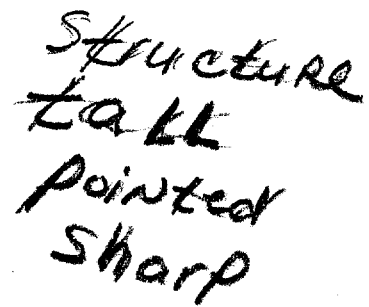 structure
tall
pointed
sharp